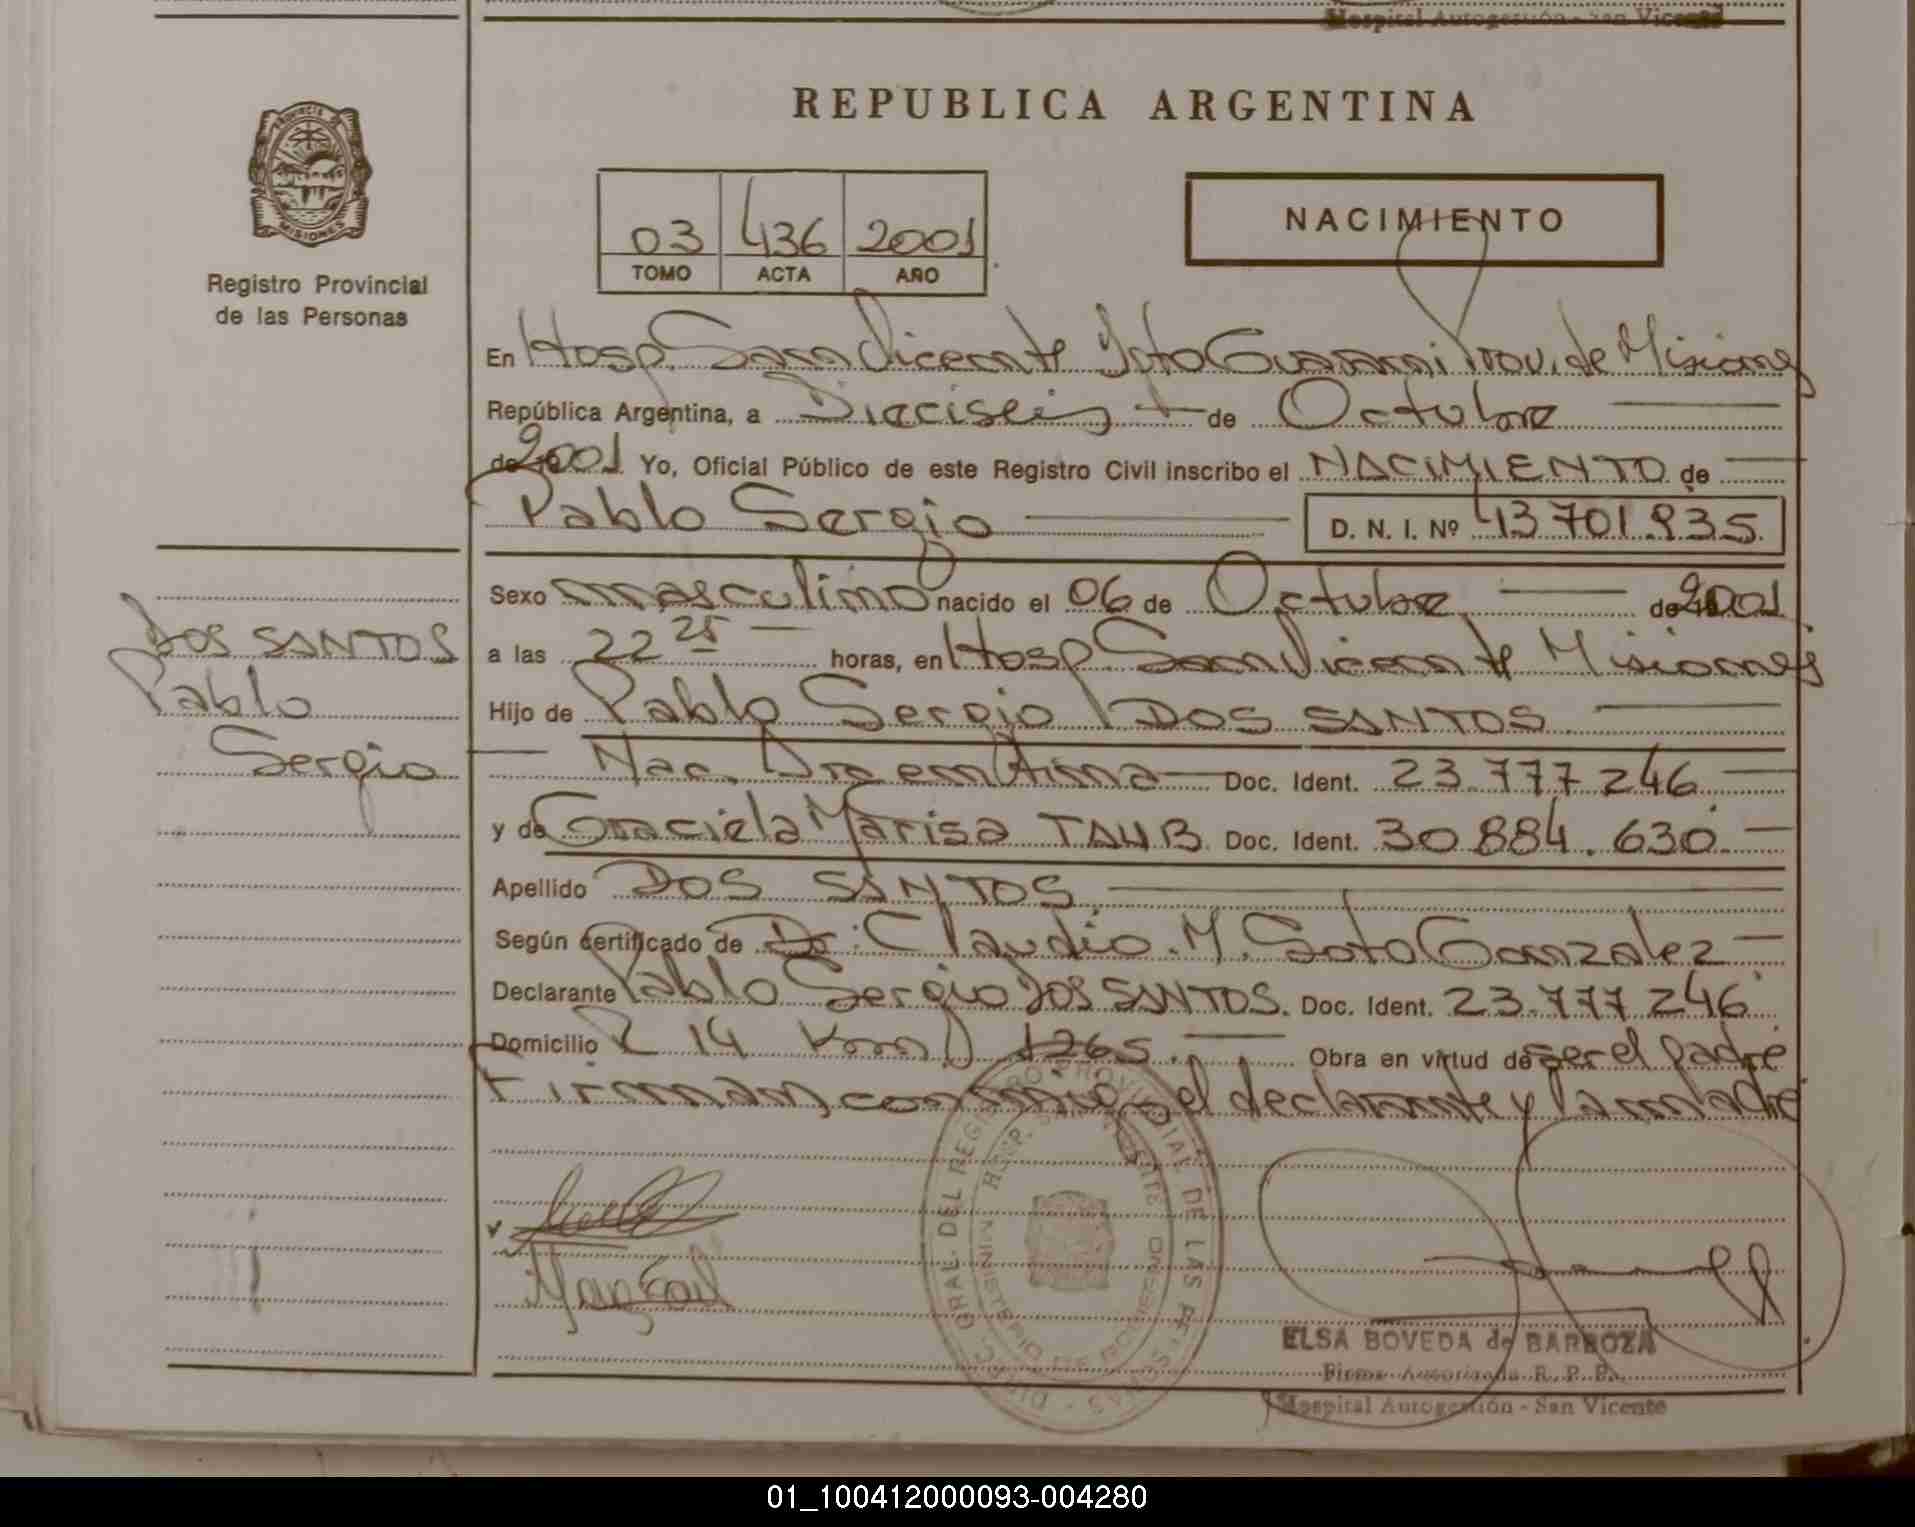 Hospital Autogestión - San Vicente
REPUBLICA ARGENTINA
PROVINCIA DE
MISIONES
Registro Provincial
de las Personas
03 436 2001
TOMO ACTA AÑO
NACIMIENTO
En Hosp. San Vicente Dpto Guarani Prov. de Misiones
República Argentina, a Dieciseis de Octubre
de 2001 Yo, Oficial Público de este Registro Civil inscribo el NACIMIENTO de
Pablo Sergio D. N. I. Nº 43701.935
Sexo masculino nacido el 06 de Octubre de 2001
DOS SANTOS
Pablo
Sergio
a las 22 25 horas, en Hosp San Vicente Misiones
Hijo de Pablo Sergio DOS SANTOS
Nac. Argentina Doc. Ident. 23.777 246
y de Graciela Marisa TAUB Doc. Ident. 30.884.630
Apellido DOS SANTOS
Según certificado de Dr. Claudio M. Soto Gonzalez
Declarante Pablo Sergio DOS SANTOS. Doc. Ident. 23.777 246
Domicilio R 14 Km 1265. Obra en virtud de ser el padre
Firman conmigo el declarante y la madre
DIREC. GRAL. DEL REGISTRO PROVINCIAL DE LAS PERSONAS
HOSP. SAN VICENTE
MINISTERIO DE GOBIERNO
ELSA BOVEDA de BARBOZA
Firma Autorizada R. P. P.
Hospital Autogestión - San Vicente
01_100412000093-004280